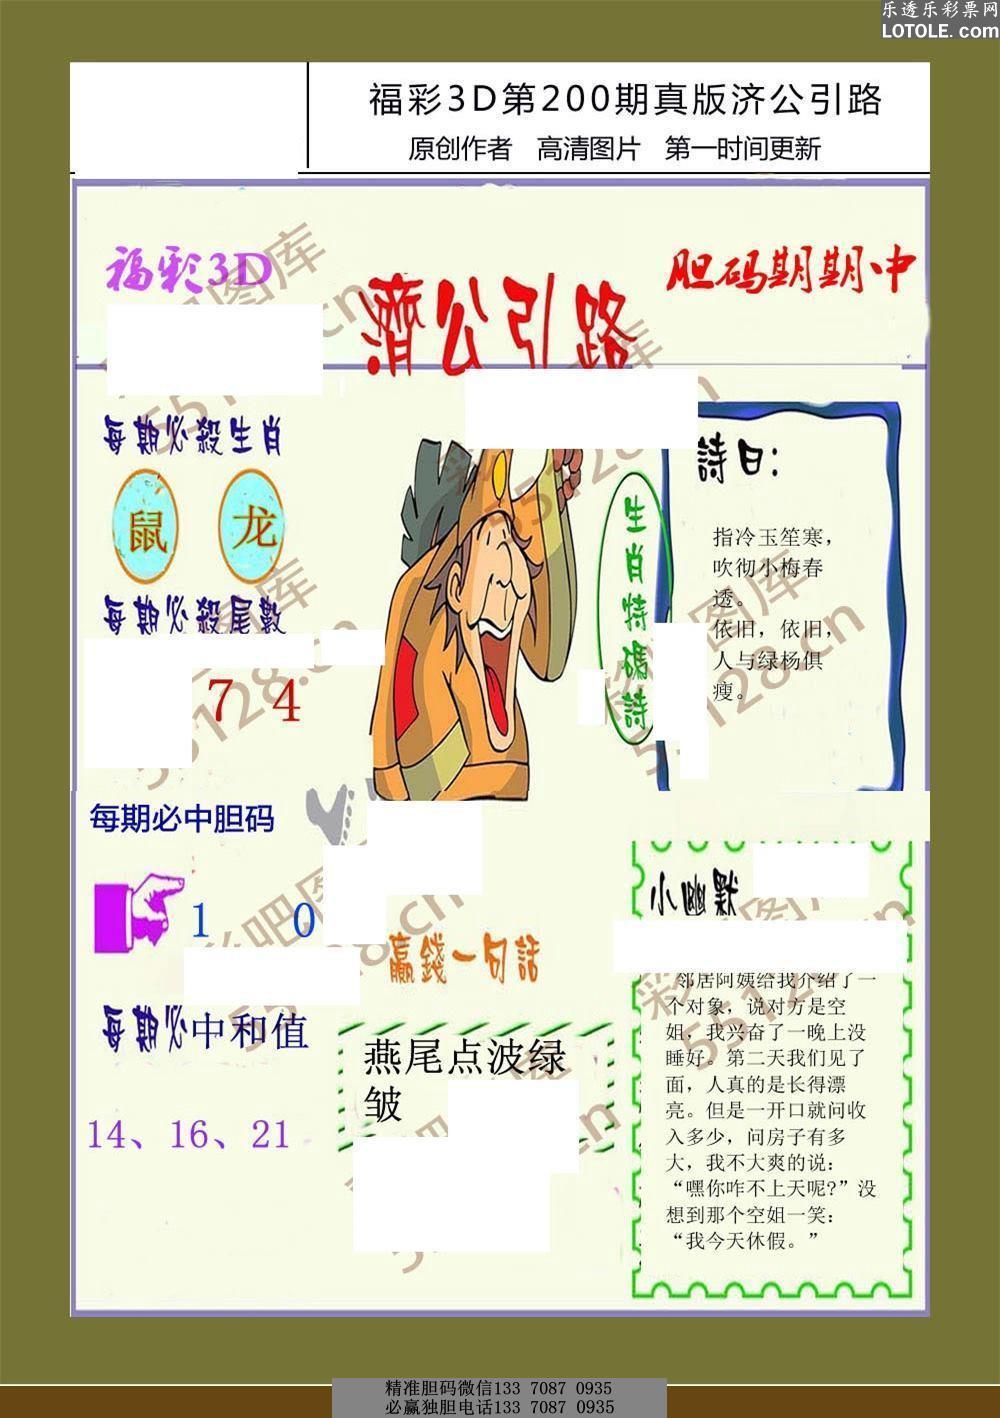 乐透乐彩票网
LOTOLE.com
福彩3D第200期真版济公引路
原创作者 高清图片 第一时间更新
福彩3D
濟公引路
胆码期期中
每期必殺生肖
鼠 龙
每期必殺尾數
7 4
生肖特碼詩
詩曰：
指冷玉笙寒，
吹彻小梅春
透。
依旧，依旧，
人与绿杨俱
瘦。
每期必中胆码
1 0
每期必中和值
14、16、21
赢錢一句話
燕尾点波绿
皱
小幽默
邻居阿姨给我介绍了一
个对象，说对方是空
姐，我兴奋了一晚上没
睡好。第二天我们见了
面，人真的是长得漂
亮。但是一开口就问收
入多少，问房子有多
大，我不大爽的说：
“嘿你咋不上天呢?”没
想到那个空姐一笑：
“我今天休假。”
精准胆码微信133 7087 0935
必赢独胆电话133 7087 0935